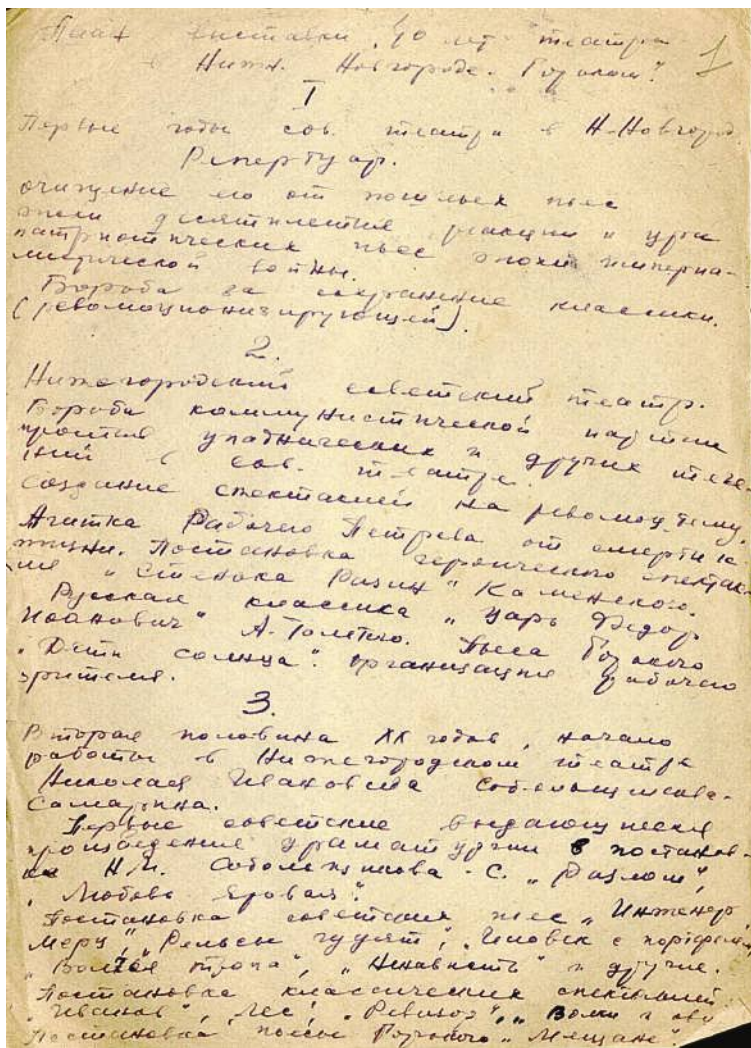 План выставки „40 лет театра
в Нижн. Новгороде - Горьком".
1
I
Первые годы сов. театра в Н-Новгород
Репертуар.
очищение его от пошлых пьес
эпохи десятилетия реакции и ура
патриотических пьес эпохи империа-
листической войны.
Борьба за сохранение классики.
(революционизирующей).
2.
Нижегородский советский театр.
Борьба коммунистической партии
против упаднических и других тече-
ний в сов. театре.
Создание спектаклей на революц. тему.
Агитка Рабочего Петрева от смерти к
жизни. Постановка героического спектак-
ля „Стенька Разин" Каменского.
Русская классика „Царь Федор
Иоанович" А. Толстого. Пьеса Горького
„Дети солнца". Организация рабочего
зрителя.
3.
Вторая половина XX годов, начало
работы в Нижегородском театре
Николая Ивановича Собольщикова-
Самарина.
Первые советские выдающиеся
произведения драматургии в постанов-
ке Н.И. Собольщикова-С. „Разлом",
„Любовь Яровая".
Постановка советских пьес „Инженер
Мерц", „Рельсы гудят", „Человек с портфелем",
„Волчья тропа", „Ненависть" и другие.
Постановка классических спектаклей
„Иванов", „Лес", „Ревизор", „Волки и ов
Постановка пьесы Горького „Мещане".